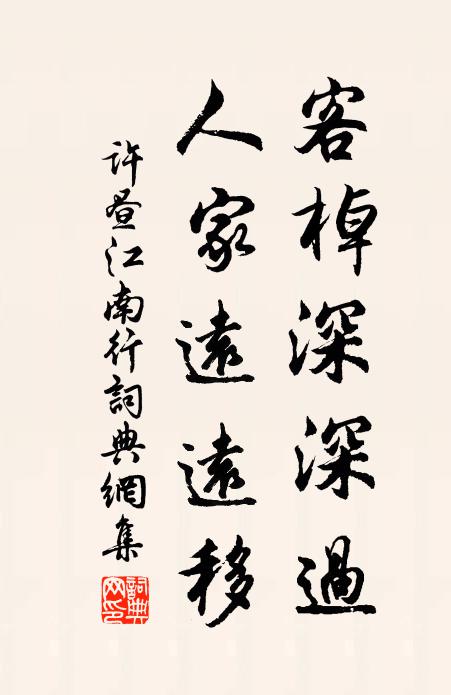 客棹深深過
人家遠遠移
許晝江南行詞典網集
詞典網印